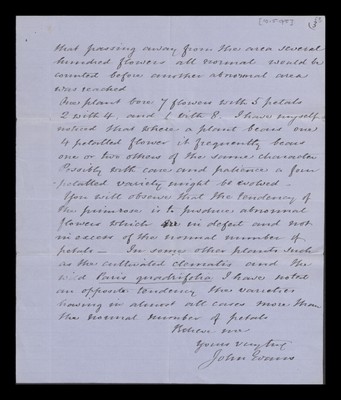 that passing away from the area several
hundred flowers all normal would be
counted before another abnormal area
was reached
One plant bore 7 flowers with 5 petals
2 with 4 and 1 with 8. I have myself
noticed that where a plant bears one
4 petalled flower it frequently bears
one or two others of the same character
Possibly with care and patience a four
petalled variety might be evolved –
You will observe that the tendency of
the primrose is to produce abnormal
flowers which are in defect and not
in excess of the normal number of
petals — In some other plants such
as the cultivated clematis and the
wild Paris quadrifolia I have noted
an opposite tendency the varieties
having in almost all cases more than
the normal number of petals
Believe me
yours very truly
John Evans